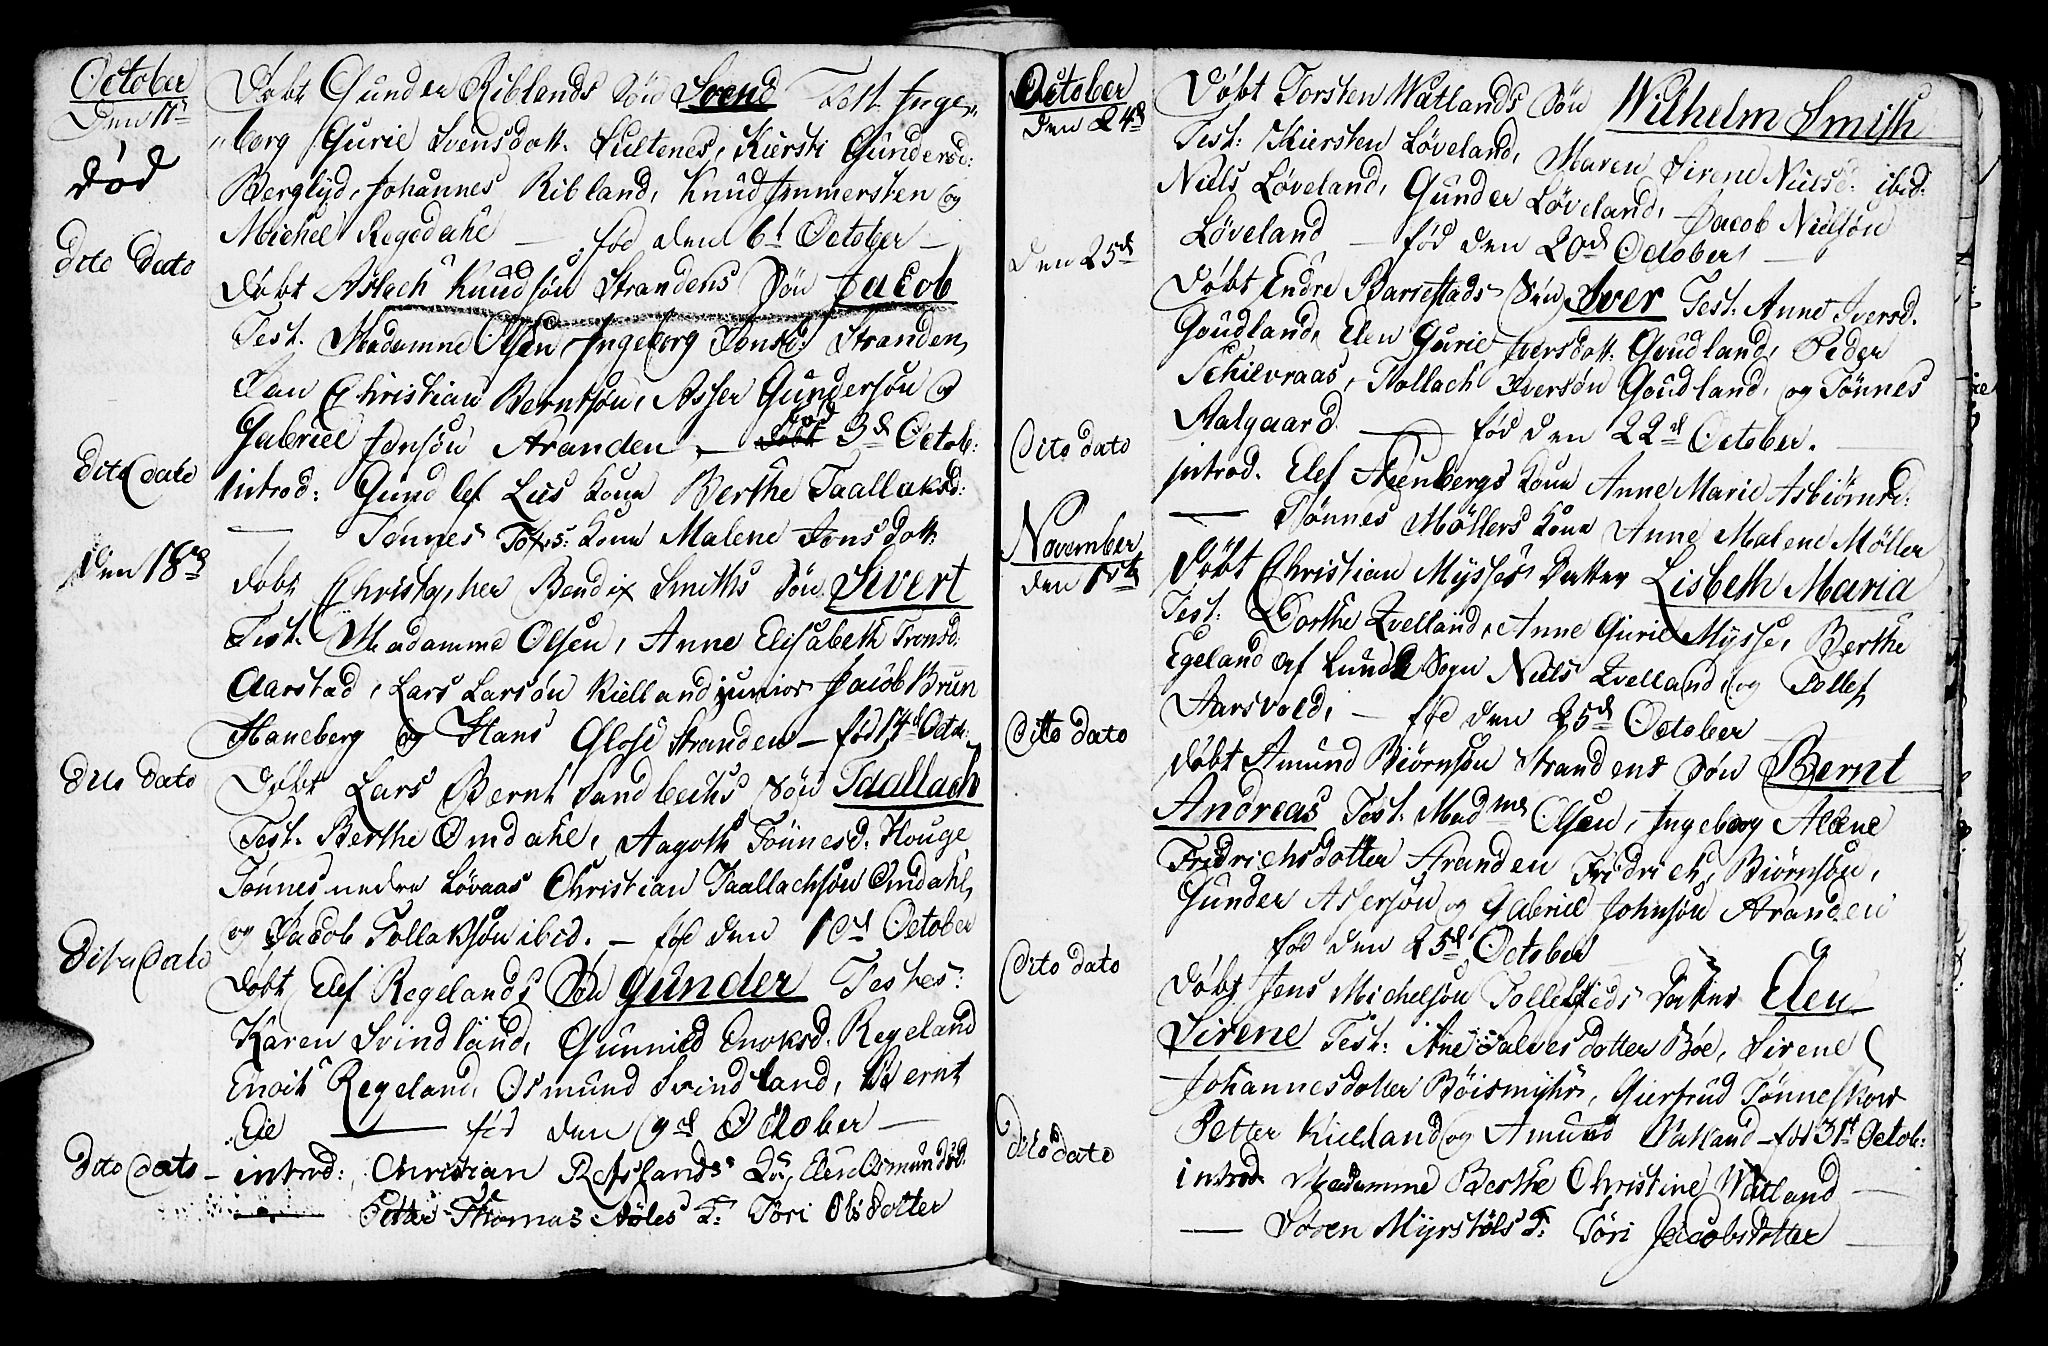 October
Den 11te
død
Døbt Gunder Riblands Søn Svend Test. Inge„
„borg Gurie Svensdatt. Sultenes, Kiersti Gundersd:
Berglyd, Johannes Ribland, Knud Immersten og
Michel Regedahl — fød den 6t October —
Dito Dato
Døbt Aslach Knudsøn Strandens Søn Jacob
Test. Madamme Olsen Ingeborg Stranden,
Jan Christian Berntsøn, Asser Gundersøn og
Gabriel Jonsøn Stranden — fød 3d Octob:
Dito dato
introd: Gundlef Lies Kone Berthe Taallaksd:
— Tønnes Kone Malene Jonsdatt.
Den 18de
døbt Christopher Bendix Smiths Søn Sivert
Test. Madamme Olsen, Anne Elisabeth Tronsd.
Aarstad, Lars Larsøn Kielland junior Jacob Brun
Haneberg og Hans Glose Stranden — fød 14d Octob:
Dito dato
Døbt Lars Bernt Sandbechs Søn Taallach
Test. Berthe Omdahl, Aagoth Tønnesd. Houge
Tønnes nedre Løvaas Christian Taallachsøn Omdahl,
og Jacob Tollaksøn ibid. — fød den 10d October
Dito Dato
Døbt Elef Regelands Søn Gunder Testes:
Karen Svindland, Gunnild Enoksd. Regeland
Enoch Regeland, Osmund Svindland, Bernt
Eie — fød den 9d October —
Dito dato —
introd: Christian Refslands Elen Osmundsd.
— Petter Thomas Nøles K: Tori Olsdotter
October
den 24d
Døbt Torsten Watlands Søn Wilhelm Smith
Test: Kiersten Løveland, Maren Sirene Nielsd: ibid:
Niels Løveland, Gunder Løveland, Jacob Nielsøn
Løveland — fød den 20d October —
Den 25d
Døbt Endre Barrestads Søn Iver Test. Anne Iversd.
Goudland, Elen Gurie Iversdatt. Goudland, Peder
Schievraas, Tollach Iversøn Goudland, og Tønnes
Aalgaard. — fød den 22d October. —
Dito dato
introd. Elef Steenbergs Kone Anne Marie Asbiørnsd:
— Tønnes Møllers Kone Anne Malene Møller
November
den 1ste
Døbt Christian Mysses Datter Lisbeth Maria
Test: Dorthe Qvelland, Anne Gurie Mysse, Berthe
Egeland af Lunde Sogn Niels Qvelland, og Tollef
Aarsvold, — fød den 25d October —
Ditto dato
døbt Amund Biørnsøn Strandens Søn Bernt
Andreas Test. Madme Olsen, Ingeborg Alene
Fridrichsdotter Stranden Fridrich Biørnsøn,
Gunder Assersøn og Gabriel Johnsøn Stranden
fød den 25d October
Dito dato
døbt Jens Michelsøn Datter Elen
Sirene Test: Ane Salvesdotter Bøe, Sirene
Johannesdotter Bøismyhr, Giertrud
Petter Kielland og Amund Vatland — fød 31t Octob:
Dito dato
introd Madamme Berthe Christine Watland —
— Søren Myrstøls K: Tøri Jacobsdotter —